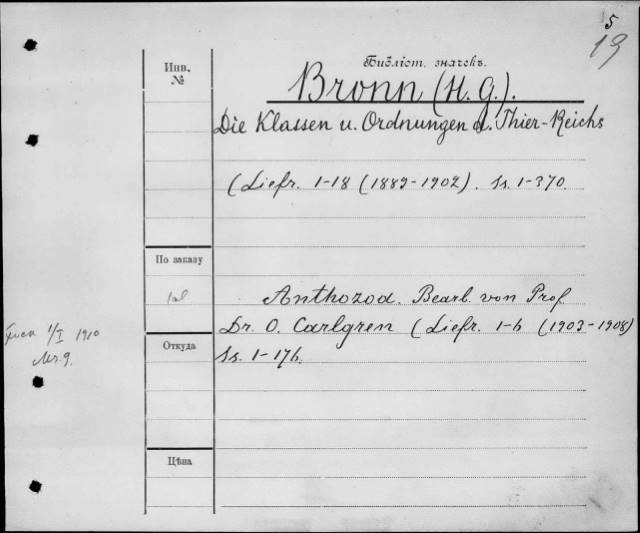 5
19
Инв.
№
Библіот. значекъ.
Bronn (H. G.).
Die Klassen u. Ordnungen d. Thier-Reichs
(Liefr. 1-18 (1889-1902). Ss. 1-370.
По заказу
Anthozod. Bearb. von Prof.
Dr. O. Carlgren (Liefr. 1-6 (1903-1908)
1/I 1910
Откуда
Ss. 1-176.
Цѣна